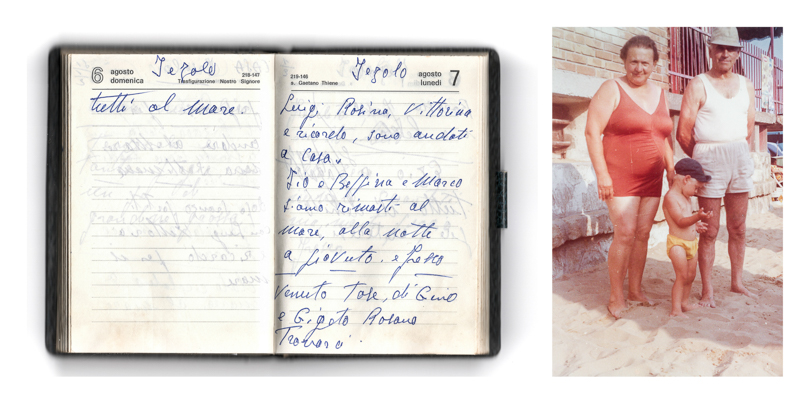 6 agosto
domenica
Jesolo
218-147
Trasfigurazione Nostro Signore
tutti al mare.
219-146
s. Gaetano Thiene
Jesolo
agosto
lunedì 7
Luigi, Rosina, Vittorina
e ricardo, sono andati
a casa.
e Beffina e Marco
siamo rimasti al
mare, alla notte
a piovuto. e fresco
Venuto Tose, di Gino
e Rosana